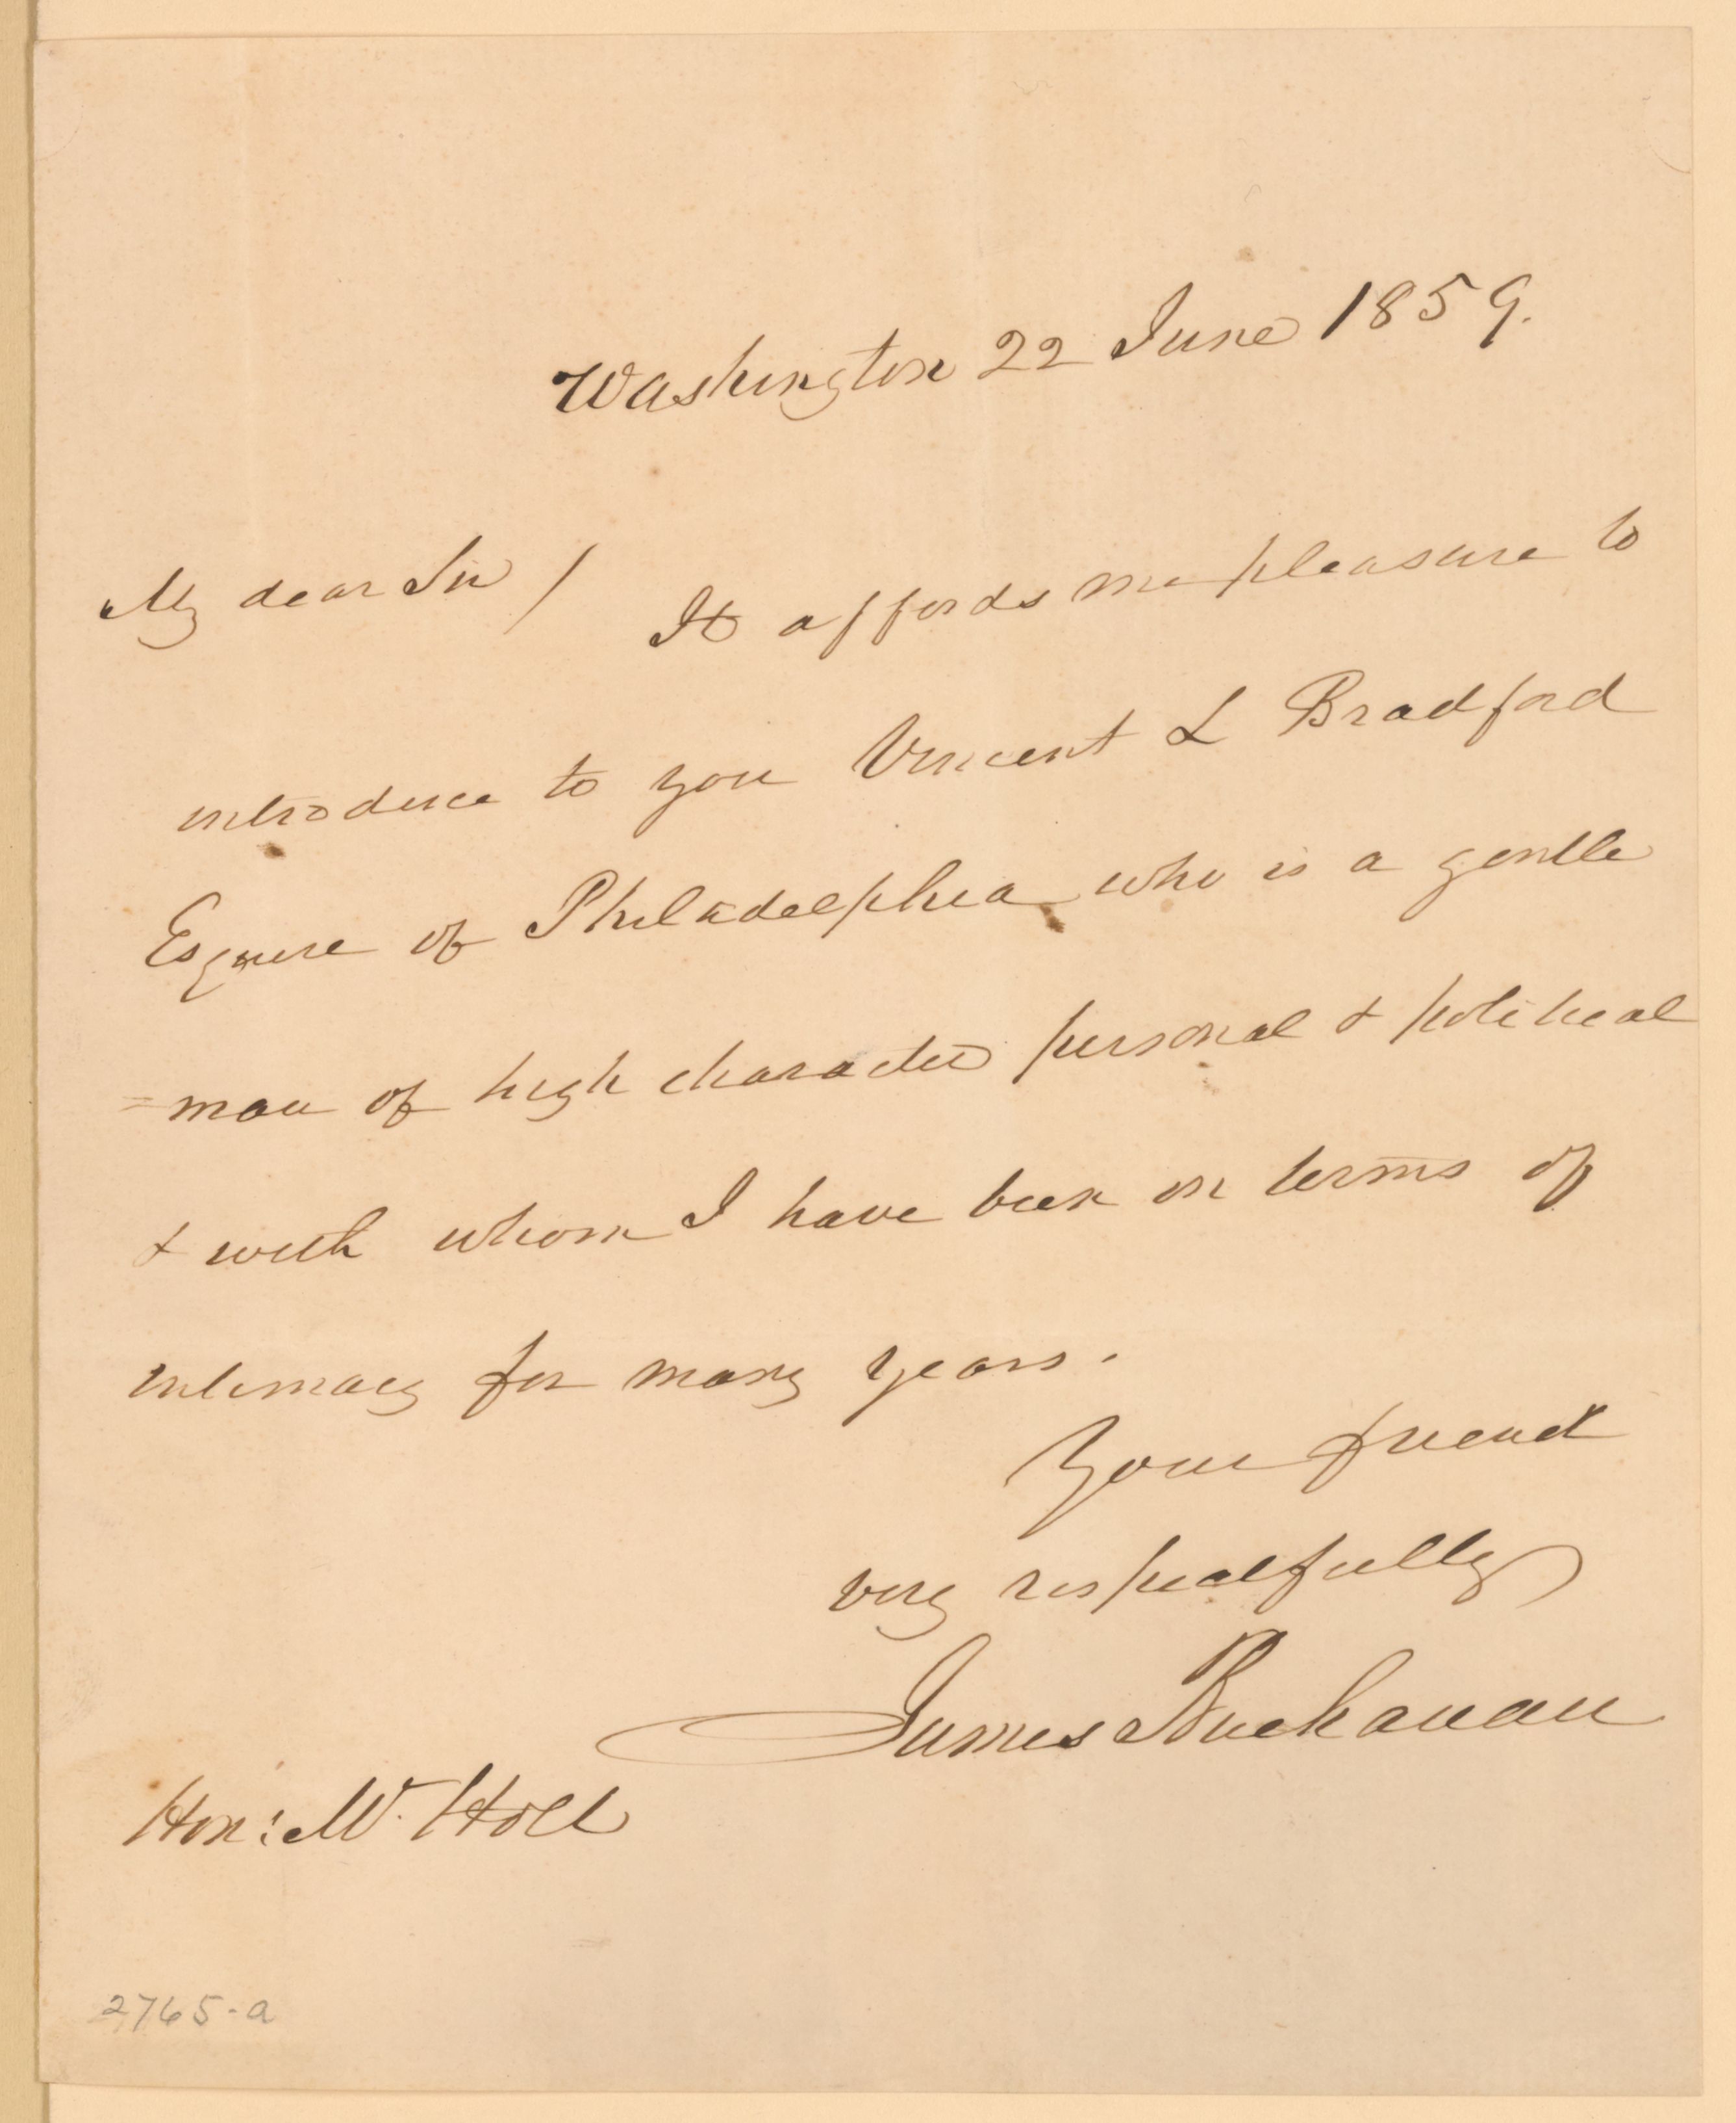 Washington 22 June 1859.
My dear Sir / It affords me pleasure to
introduce to you Vincent L Bradford
Esquire of Philadelphia who is a gentle
=man of high character personal & political
& with whom I have been on terms of
intimacy for many years.
Your friend
very respectfully
James Buchanan
Hon: Mr. Holt
2765-a